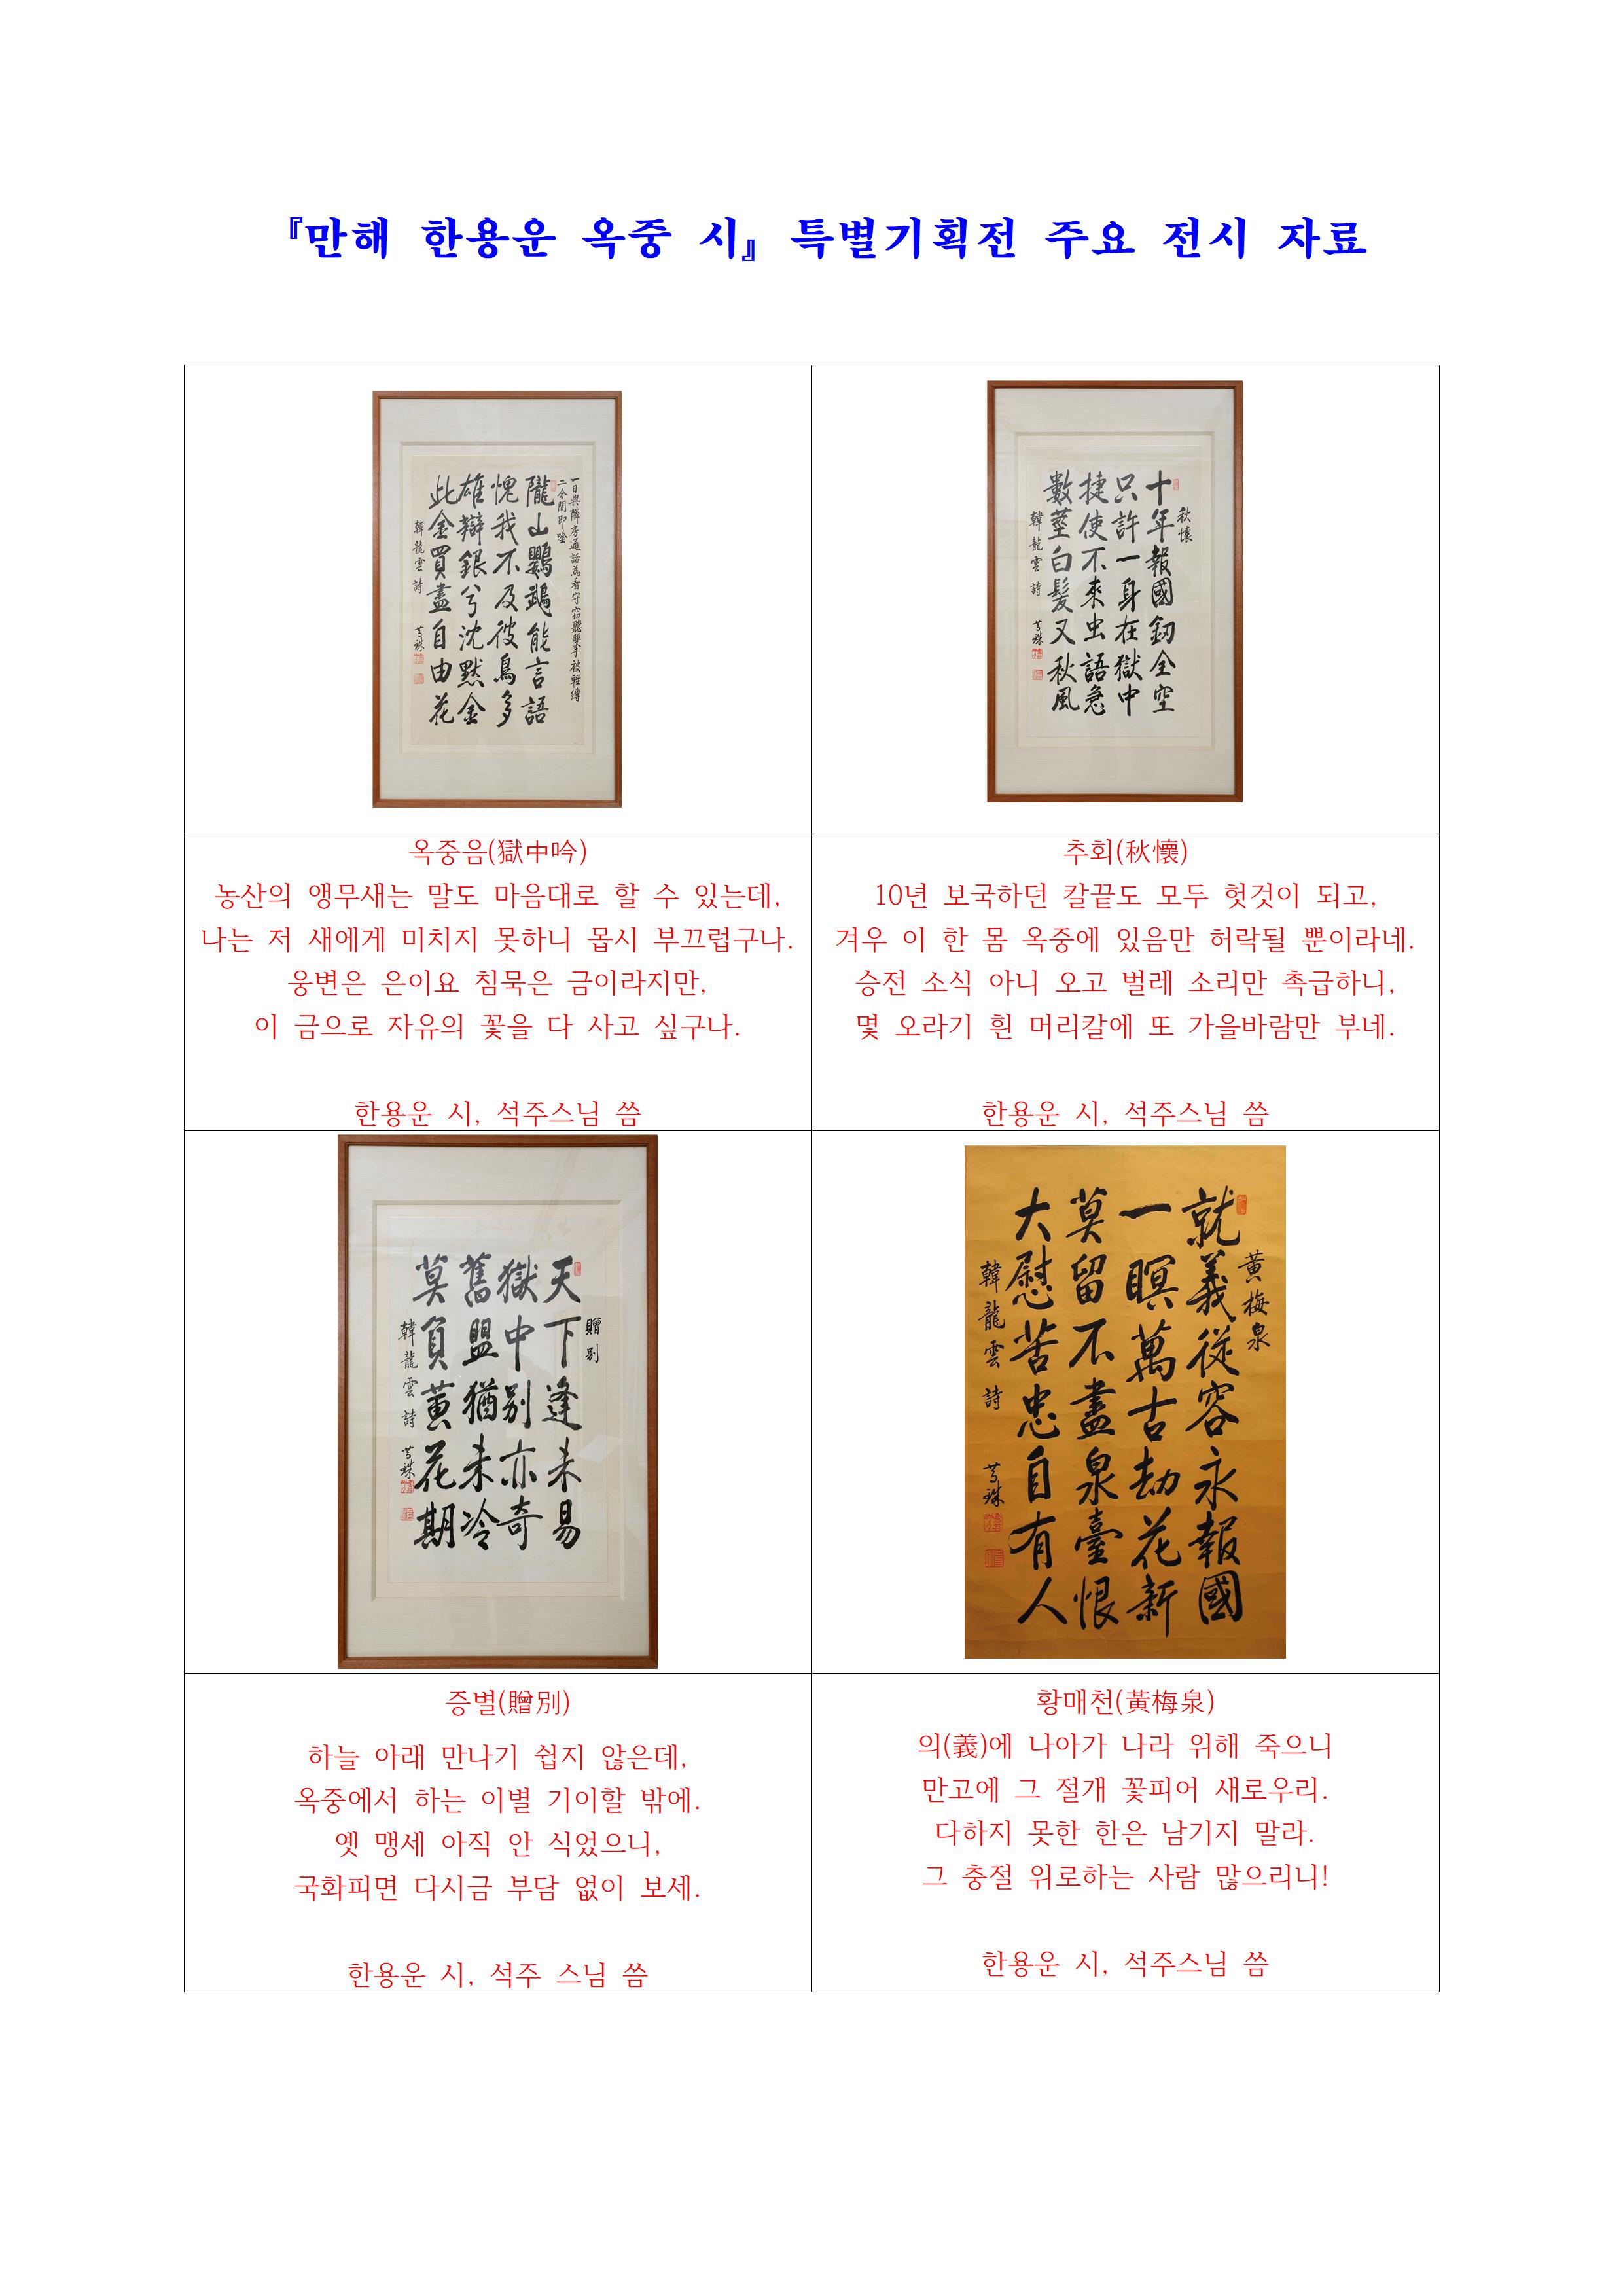 『만해 한용운 옥중 시』 특별기획전 주요 전시 자료
一日與隣房通話爲看守窃聽雙手被輕縛
二分間卽唫
隴山鸚鵡能言語
愧我不及彼鳥多
雄辯銀兮沈默金
此金買盡自由花
韓龍雲 詩
秋懷
十年報國釰全空
只許一身在獄中
捷使不來虫語急
數莖白髮又秋風
韓龍雲 詩
옥중음(獄中吟)
농산의 앵무새는 말도 마음대로 할 수 있는데,
나는 저 새에게 미치지 못하니 몹시 부끄럽구나.
웅변은 은이요 침묵은 금이라지만,
이 금으로 자유의 꽃을 다 사고 싶구나.
한용운 시, 석주스님 씀
추회(秋懷)
10년 보국하던 칼끝도 모두 헛것이 되고,
겨우 이 한 몸 옥중에 있음만 허락될 뿐이라네.
승전 소식 아니 오고 벌레 소리만 촉급하니,
몇 오라기 흰 머리칼에 또 가을바람만 부네.
한용운 시, 석주스님 씀
贈別
天下逢未易
獄中別亦奇
舊盟猶未冷
莫負黃花期
韓龍雲 詩
黃梅泉
就義從容永報國
一瞑萬古劫花新
莫留不盡泉臺恨
大慰苦忠自有人
韓龍雲 詩
증별(贈別)
하늘 아래 만나기 쉽지 않은데,
옥중에서 하는 이별 기이할 밖에.
옛 맹세 아직 안 식었으니,
국화피면 다시금 부담 없이 보세.
한용운 시, 석주 스님 씀
황매천(黃梅泉)
의(義)에 나아가 나라 위해 죽으니
만고에 그 절개 꽃피어 새로우리.
다하지 못한 한은 남기지 말라.
그 충절 위로하는 사람 많으리니!
한용운 시, 석주스님 씀